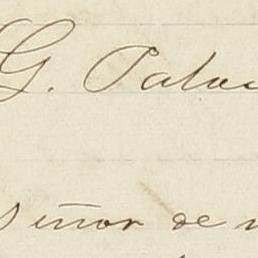 G. Palac
Señor de